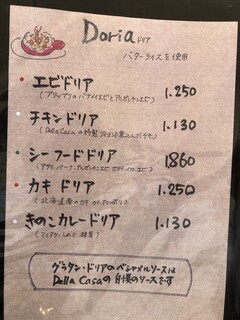 Doria ドリア
バターライスを使用
エビドリア 1.250
(プリップリのバナメイエビとアルゼンチンエビ)
チキンドリア 1.130
(Della Casaの特製 チキン)
シーフードドリア 1.860
カキ ドリア 1.250
(北海道産のカキ
きのこカレードリア 1.130
(マイタケ、しめじ 椎茸)
グラタン・ドリアのベシャメルソースは
Della Casaの自慢のソースです